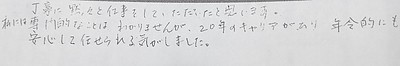 丁寧に黙々と仕事をしていただいたと思います。
私には専門的なことはわかりませんが、20年のキャリアがあり 年令的にも
安心して任せられる気がしました。